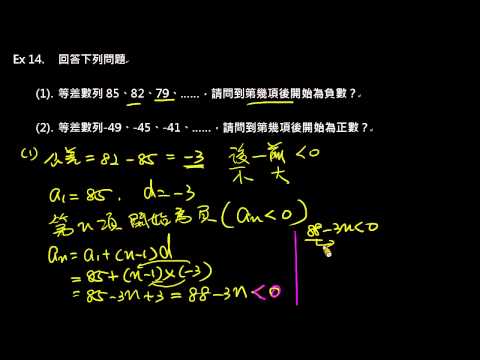 Ex 14. 回答下列問題。
(1). 等差數列 85、82、79、……，請問到第幾項後開始為負數？
(2). 等差數列-49、-45、-41、……，請問到第幾項後開始為正數？
(1) 公差 = 82 - 85 = -3 後 - 前 < 0
小 大
a₁ = 85 . d = -3
第 n 項 開始為負 (aₙ < 0)
aₙ = a₁ + (n-1)d
= 85 + (n-1)×(-3)
= 85 - 3n + 3 = 88 - 3n < 0
88 - 3n < 0